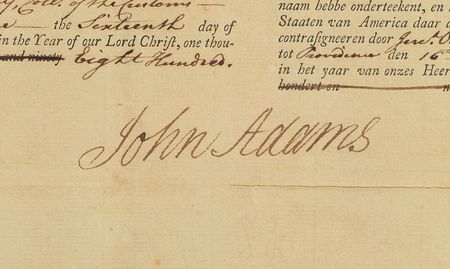 Coll. of the Customs
the Sixteenth day of
in the Year of our Lord Christ, one thou-
and ninety Eight Hundred.
naam hebbe onderteekent, en
Staaten van America daar
contrasigneeren door
tot Providence den 16
in het yaar van onzes Heer
hondert en
John Adams